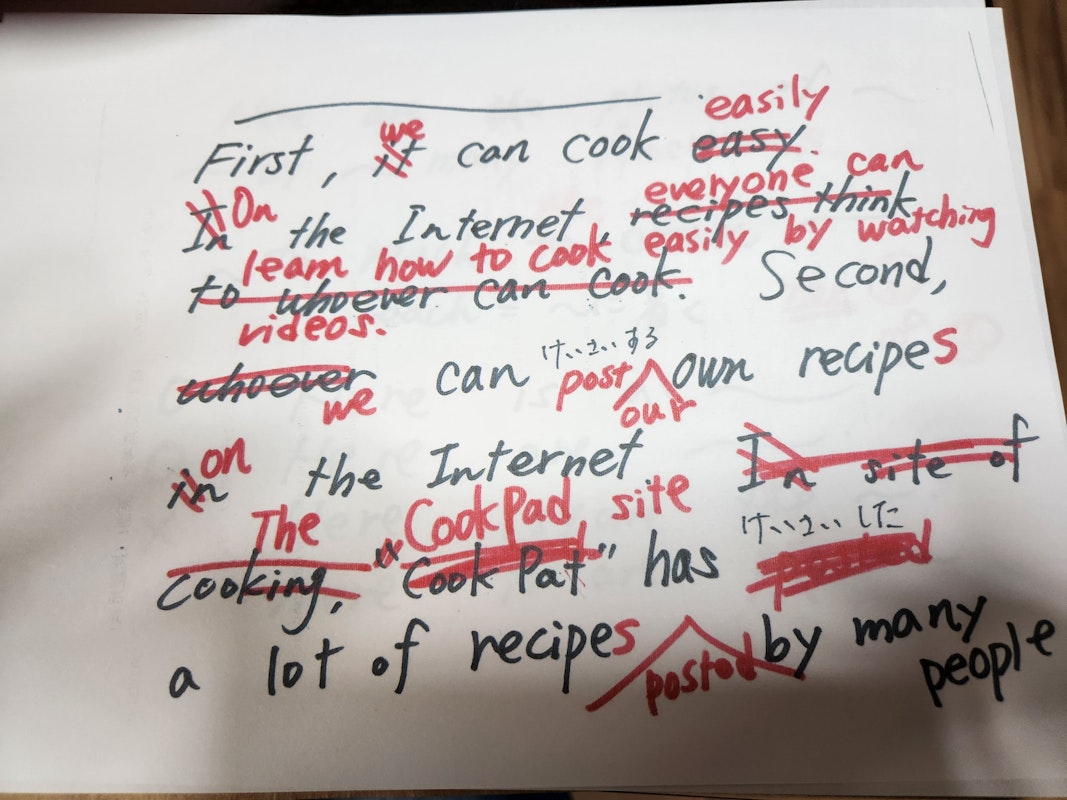 easily
First, we it can cook easy.
everyone can
In On the Internet, recipes think
learn how to cook easily by watching
to whoever can cook. Second,
videos.
けいさいする
whoever can post own recipes
we our
on
in the Internet In site of
The "CookPad" site けいさいした
cooking, "Cook Pat" has posted
a lot of recipes posted by many
people